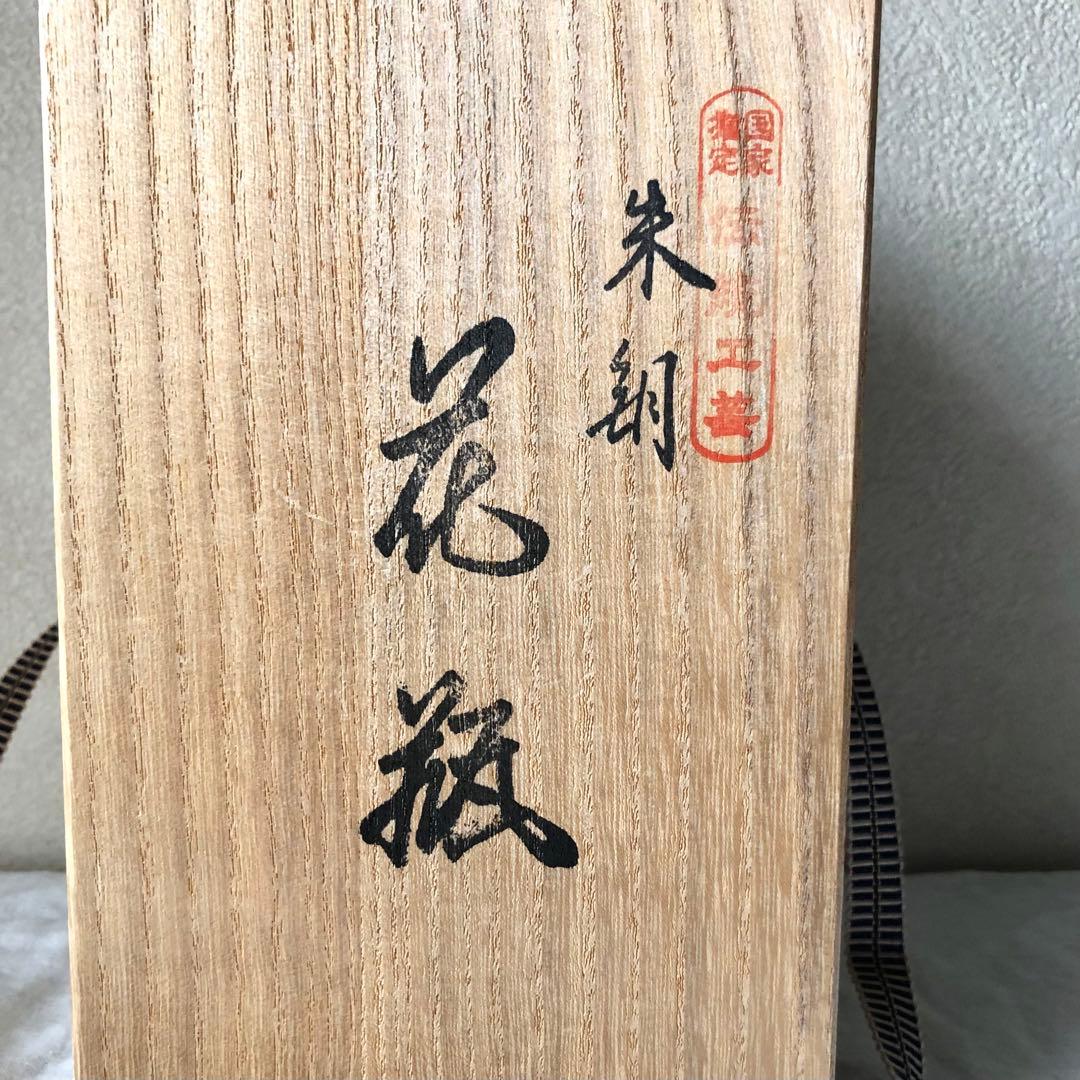 国家
指定
伝統工芸
朱銅
花瓶